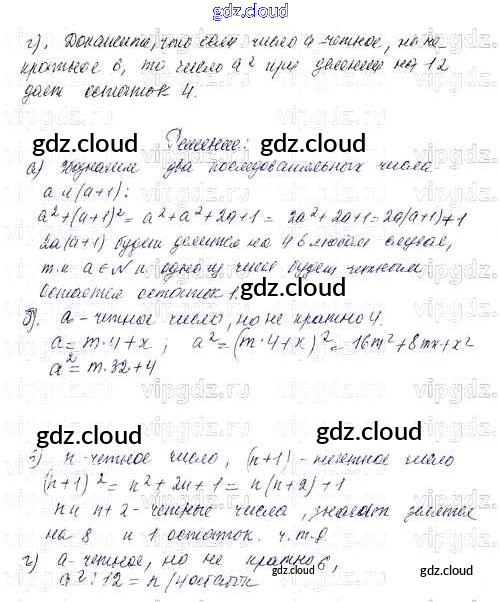 gdz.cloud
г). Докажите, что если число a - четное, но не
кратное 6, то число a² при делении на 12
дает остаток 4.
gdz.cloud
gdz.cloud
Решение:
а) Обозначим два последовательных числа
a и (a+1):
a²+(a+1)² = a²+a²+2a+1 = 2a²+2a+1 = 2a(a+1)+1
2a(a+1) будет делится на 4 в любом случае,
т.к. a ∈ N и одно из чисел будет четным
остается остаток 1.
gdz.cloud
б). a - четное число, но не кратно 4.
a = m·4+x ; a² = (m·4+x)² = 16m²+8mx+x²
a² = m·32+4
gdz.cloud
gdz.cloud
в) n - четное число, (n+1) - нечетное число
(n+1)² = n²+2n+1 = n(n+2)+1
n и n+2 - четные числа, значит делятся
на 8 и 1 остаток. ч.т.д.
г) a - четное, но не кратно 6,
a² : 12 = n / 4 остаток
gdz.cloud
gdz.cloud